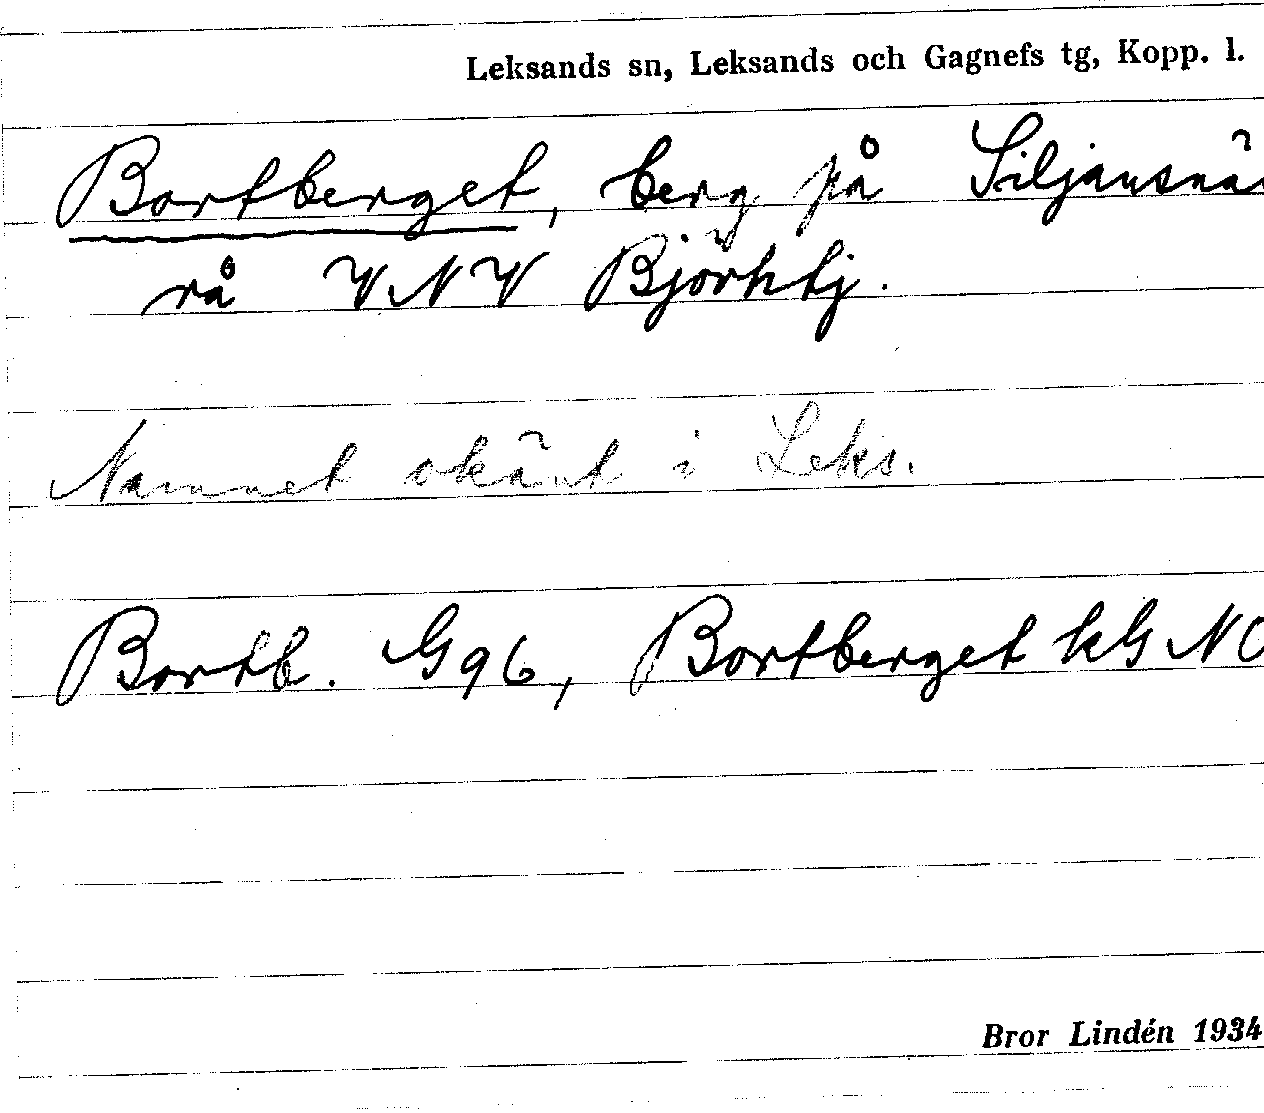 Leksands sn, Leksands och Gagnefs tg, Kopp. l.
Bortberget, berg på Siljansnä
rå VNV Björktj.
Namnet okänt i Leks.
Bortb. G96, Bortberget kG NO
Bror Lindén 1934